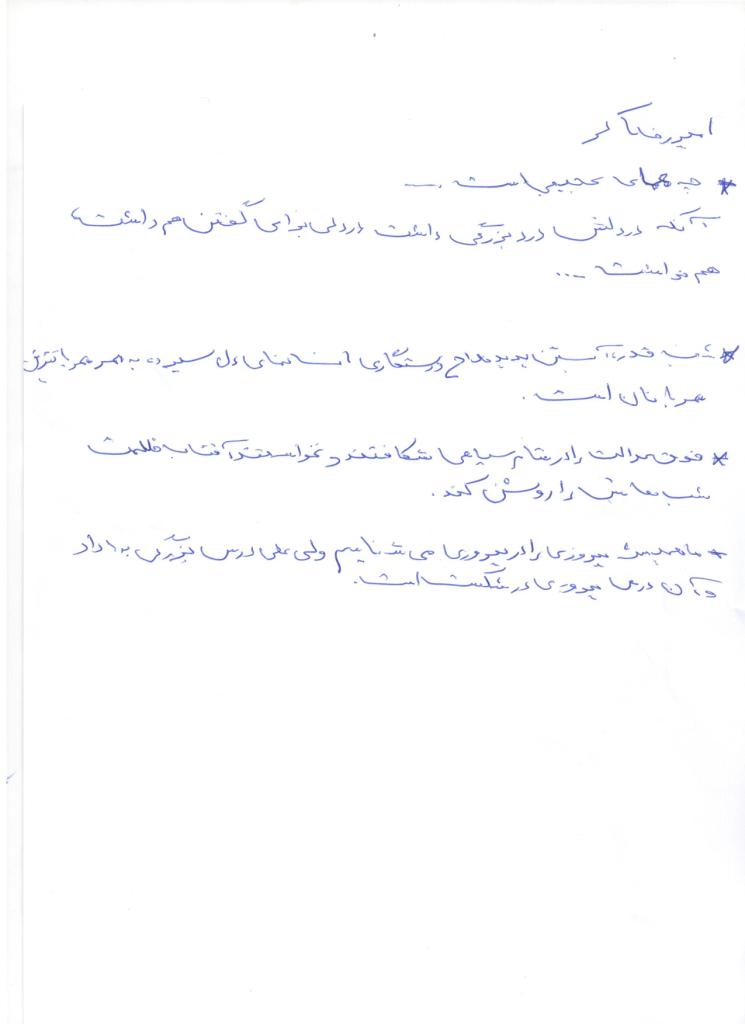 امیررضا
* چه معمای عجیبی است ...
آنکه در دلش درد بزرگی داشت دردی برای گفتن هم داشت،
هم نداشت ...
* شب قدر، آبستن پدیده رستگاری انسانهای دل سپرده به مهر مهربانترین
مهربانان است.
* فرق عدالت را در شام سیاهی شکافتند و نخواستند آفتاب ظلمت
شب‌هایش را روشن کند.
* ما همیشه پیروزی را در پیروزی می شناسیم ولی علی درس بزرگی به ما داد
و آن درس پیروزی در شکست است.